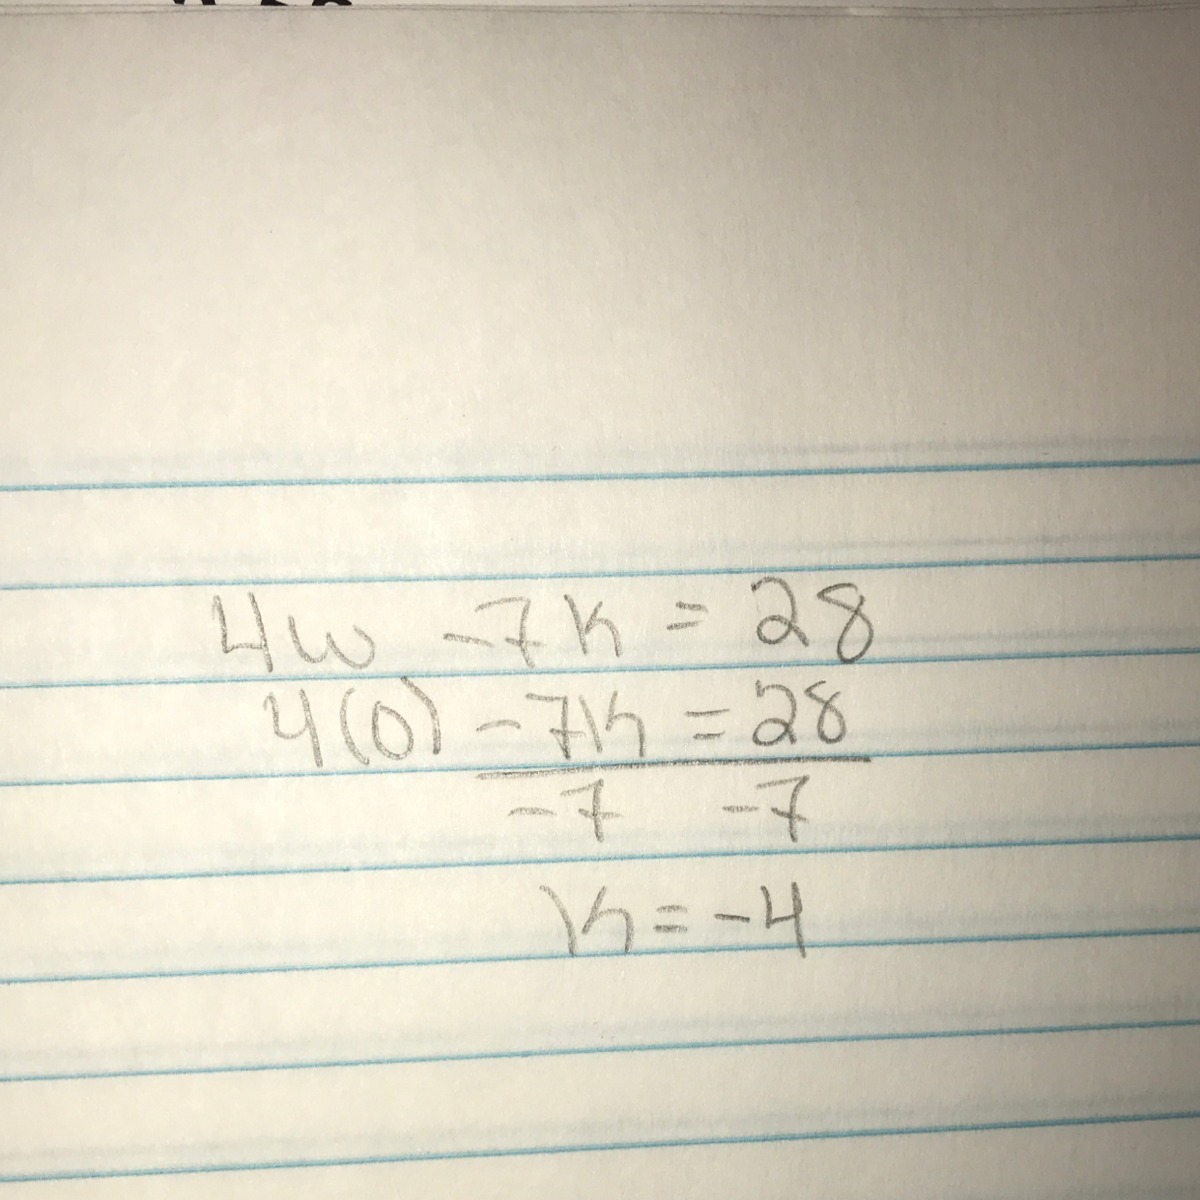 4w -7k = 28
4(0) -7k = 28
-7 -7
k = -4